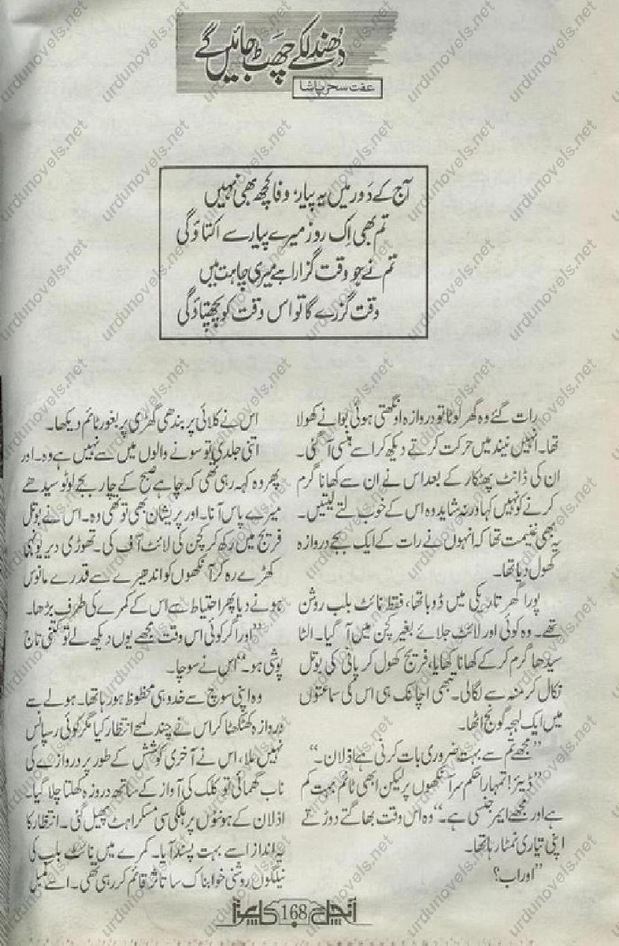 دھندلکے چھٹ جائیں گے
عفت سحر پاشا
آج کے دور میں یہ پیار، وفا کچھ بھی نہیں
تم بھی اِک روز میرے پیار سے اکتاؤ گی
تم نے جو وقت گزارا ہے میری چاہت میں
وقت گزرے گا تو اس وقت کو پچھتاؤ گی
رات گئے وہ گھر لوٹا تو دروازہ اونگھتی ہوئی بوا نے کھولا
تھا۔ انہیں نیند میں حرکت کرتے دیکھ کر اسے ہنسی آ گئی۔
ان کی ڈانٹ پھٹکار کے بعد اس نے ان سے کھانا گرم
کرنے کو نہیں کہا ورنہ شاید وہ اس کے خوب لتے لیتیں۔
یہ بھی غنیمت تھا کہ انہوں نے رات کے ایک بجے دروازہ
کھول دیا تھا۔
پورا گھر تاریکی میں ڈوبا تھا، فقط نائٹ بلب روشن
تھے۔ وہ کوئی اور لائٹ جلائے بغیر کچن میں آ گیا۔ الٹا
سیدھا گرم کر کے کھانا کھایا، فریج کھول کر پانی کی بوتل
نکال کر منہ سے لگالی۔ تبھی اچانک ہی اس کی سماعتوں
میں ایک لہجہ گونج اٹھا۔
”مجھے تم سے بہت ضروری بات کرنی ہے اذلان۔“
”ڈیئر! تمہارا حکم سر آنکھوں پر لیکن ابھی ٹائم بہت کم
ہے اور مجھے ایمرجنسی ہے۔“ وہ اس وقت بھاگتے دوڑتے
اپنی تیاری نمٹا رہا تھا۔
”اور اب؟
اس نے کلائی پر بندھی گھڑی پر بغور ٹائم دیکھا۔
اتنی جلدی تو سونے والوں میں سے نہیں ہے وہ۔ اور
پھر وہ کہہ رہی تھی کہ چاہے صبح کے چار بجے لوٹو سیدھے
میرے پاس آنا۔ اور پریشان بھی تو تھی وہ۔ اس نے بوتل
فریج میں رکھ کر کچن کی لائٹ آف کی۔ تھوڑی دیر یونہی
کھڑے رہ کر آنکھوں کو اندھیرے سے قدرے مانوس
ہونے دیا پھر احتیاط سے اس کے کمرے کی طرف بڑھا۔
”اور اگر کوئی اس وقت مجھے یوں دیکھ لے تو کتنی تاج
پوشی ہو۔“ اس نے سوچا۔
وہ اپنی سوچ سے خود ہی محظوظ ہو رہا تھا۔ ہولے سے
دروازہ کھٹکھٹا کر اس نے چند لمحے انتظار کیا مگر کوئی رسپانس
نہیں ملا، اس نے آخری کوشش کے طور پر دروازے کی
ناب گھمائی تو کلک کی آواز کے ساتھ دروزہ کھلتا چلا گیا۔
اذلان کے ہونٹوں پر ہلکی سی مسکراہٹ پھیل گئی۔ انتظار کا
یہ انداز اسے بہت پسند آیا۔ کمرے میں نائٹ بلب کی
نیلگوں روشنی خوابناک سا تاثر قائم کر رہی تھی۔ اسے کمبل
آنچل 168 کراچی
urdunovels.net